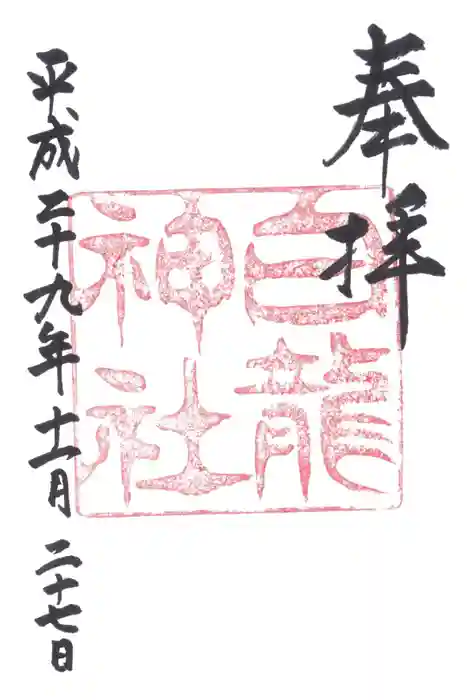 奉拝
白龍
神社
平成二十九年十一月二十七日